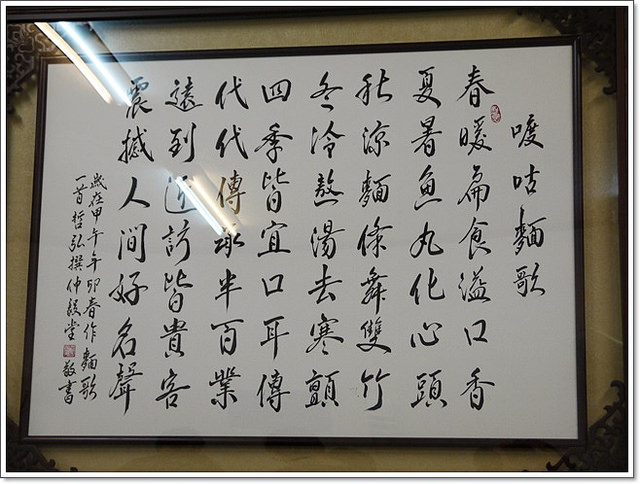 咕麵歌
春暖扁食溢口香
夏暑魚丸化心頭
秋涼麵條舞雙竹
冬冷熬湯去寒顫
四季皆宜口耳傳
代代傳承半百業
遠到近訪皆貴客
震撼人間好名聲
歲在甲午年卯春作麵歌
一首哲弘撰仲毅堂敬書